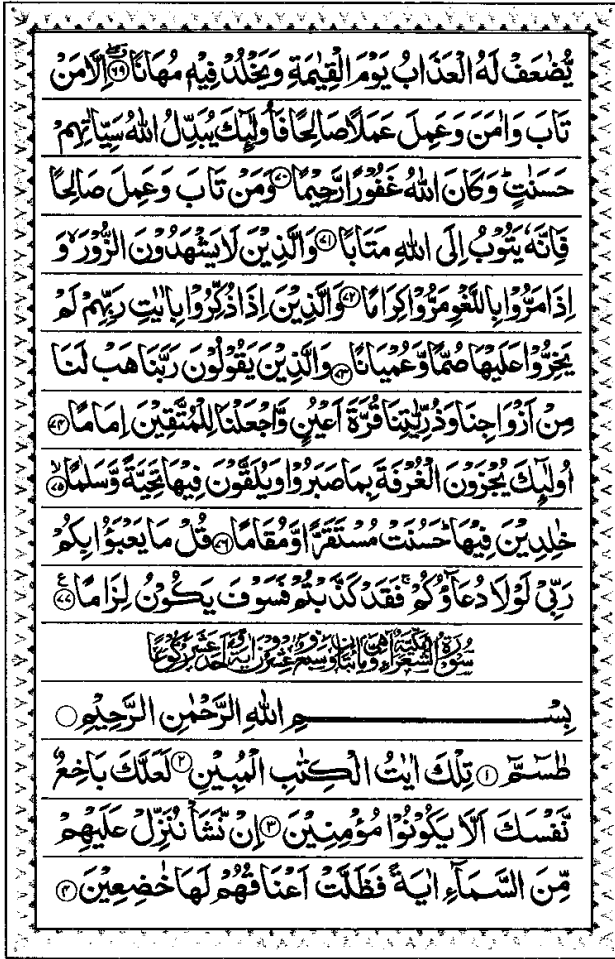 يُّضٰعَفْ لَهُ الْعَذَابُ يَوْمَ الْقِيٰمَةِ وَيَخْلُدْ فِيْهٖ مُهَانًا ﴿٦٩﴾ اِلَّا مَنْ
تَابَ وَاٰمَنَ وَعَمِلَ عَمَلًا صَالِحًا فَاُولٰٓئِكَ يُبَدِّلُ اللّٰهُ سَيِّاٰتِهِمْ
حَسَنٰتٍ ؕ وَكَانَ اللّٰهُ غَفُوْرًا رَّحِيْمًا ﴿٧٠﴾ وَمَنْ تَابَ وَعَمِلَ صَالِحًا
فَاِنَّهٗ يَتُوْبُ اِلَى اللّٰهِ مَتَابًا ﴿٧١﴾ وَالَّذِيْنَ لَا يَشْهَدُوْنَ الزُّوْرَ ۙ وَ
اِذَا مَرُّوْا بِاللَّغْوِ مَرُّوْا كِرَامًا ﴿٧٢﴾ وَالَّذِيْنَ اِذَا ذُكِّرُوْا بِاٰيٰتِ رَبِّهِمْ لَمْ
يَخِرُّوْا عَلَيْهَا صُمًّا وَّعُمْيَانًا ﴿٧٣﴾ وَالَّذِيْنَ يَقُوْلُوْنَ رَبَّنَا هَبْ لَنَا
مِنْ اَزْوَاجِنَا وَذُرِّيّٰتِنَا قُرَّةَ اَعْيُنٍ وَّاجْعَلْنَا لِلْمُتَّقِيْنَ اِمَامًا ﴿٧٤﴾
اُولٰٓئِكَ يُجْزَوْنَ الْغُرْفَةَ بِمَا صَبَرُوْا وَيُلَقَّوْنَ فِيْهَا تَحِيَّةً وَّسَلٰمًا ۙ﴿٧٥﴾
خٰلِدِيْنَ فِيْهَا ؕ حَسُنَتْ مُسْتَقَرًّا وَّمُقَامًا ﴿٧٦﴾ قُلْ مَا يَعْبَؤُا بِكُمْ
رَبِّيْ لَوْلَا دُعَآؤُكُمْ ۚ فَقَدْ كَذَّبْتُمْ فَسَوْفَ يَكُوْنُ لِزَامًا ﴿٧٧﴾ ع
سُوْرَةُ الشُّعَرَآءِ مَكِّيَّةٌ وَّهِيَ مِائَتَانِ وَسَبْعٌ وَّعِشْرُوْنَ اٰيَةً وَّاَحَدَ عَشَرَ رُكُوْعًا
بِسْمِ اللّٰهِ الرَّحْمٰنِ الرَّحِيْمِ
طٰسٓمّٓ ﴿١﴾ تِلْكَ اٰيٰتُ الْكِتٰبِ الْمُبِيْنِ ﴿٢﴾ لَعَلَّكَ بَاخِعٌ
نَّفْسَكَ اَلَّا يَكُوْنُوْا مُؤْمِنِيْنَ ﴿٣﴾ اِنْ نَّشَاْ نُنَزِّلْ عَلَيْهِمْ
مِّنَ السَّمَآءِ اٰيَةً فَظَلَّتْ اَعْنَاقُهُمْ لَهَا خٰضِعِيْنَ ﴿٤﴾